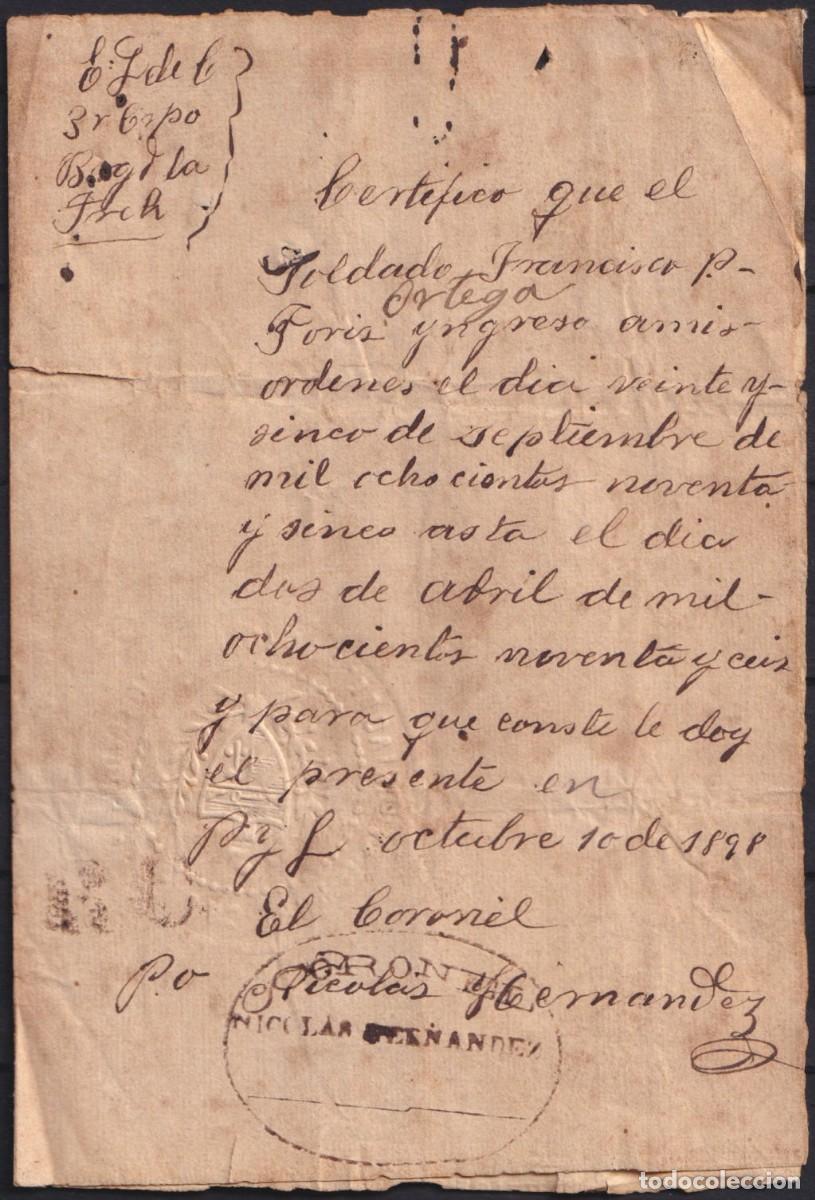 E. L de C
3r Crpo
Bagd la
Certifico que el
Soldado Francisco P.-
Ortega
Foris yngreso amis-
ordenes el dia veinte y-
sinco de septiembre de
mil ochocientos noventa
y sinco asta el dia
dos de abril de mil-
ochocientos noventa y ceis
y para que conste le doy
el presente en
P y L octubre 10 de 1898
El Coronel
P.o Nicolás Hernandez
CORONEL
NICOLAS HERNANDEZ
todocoleccion